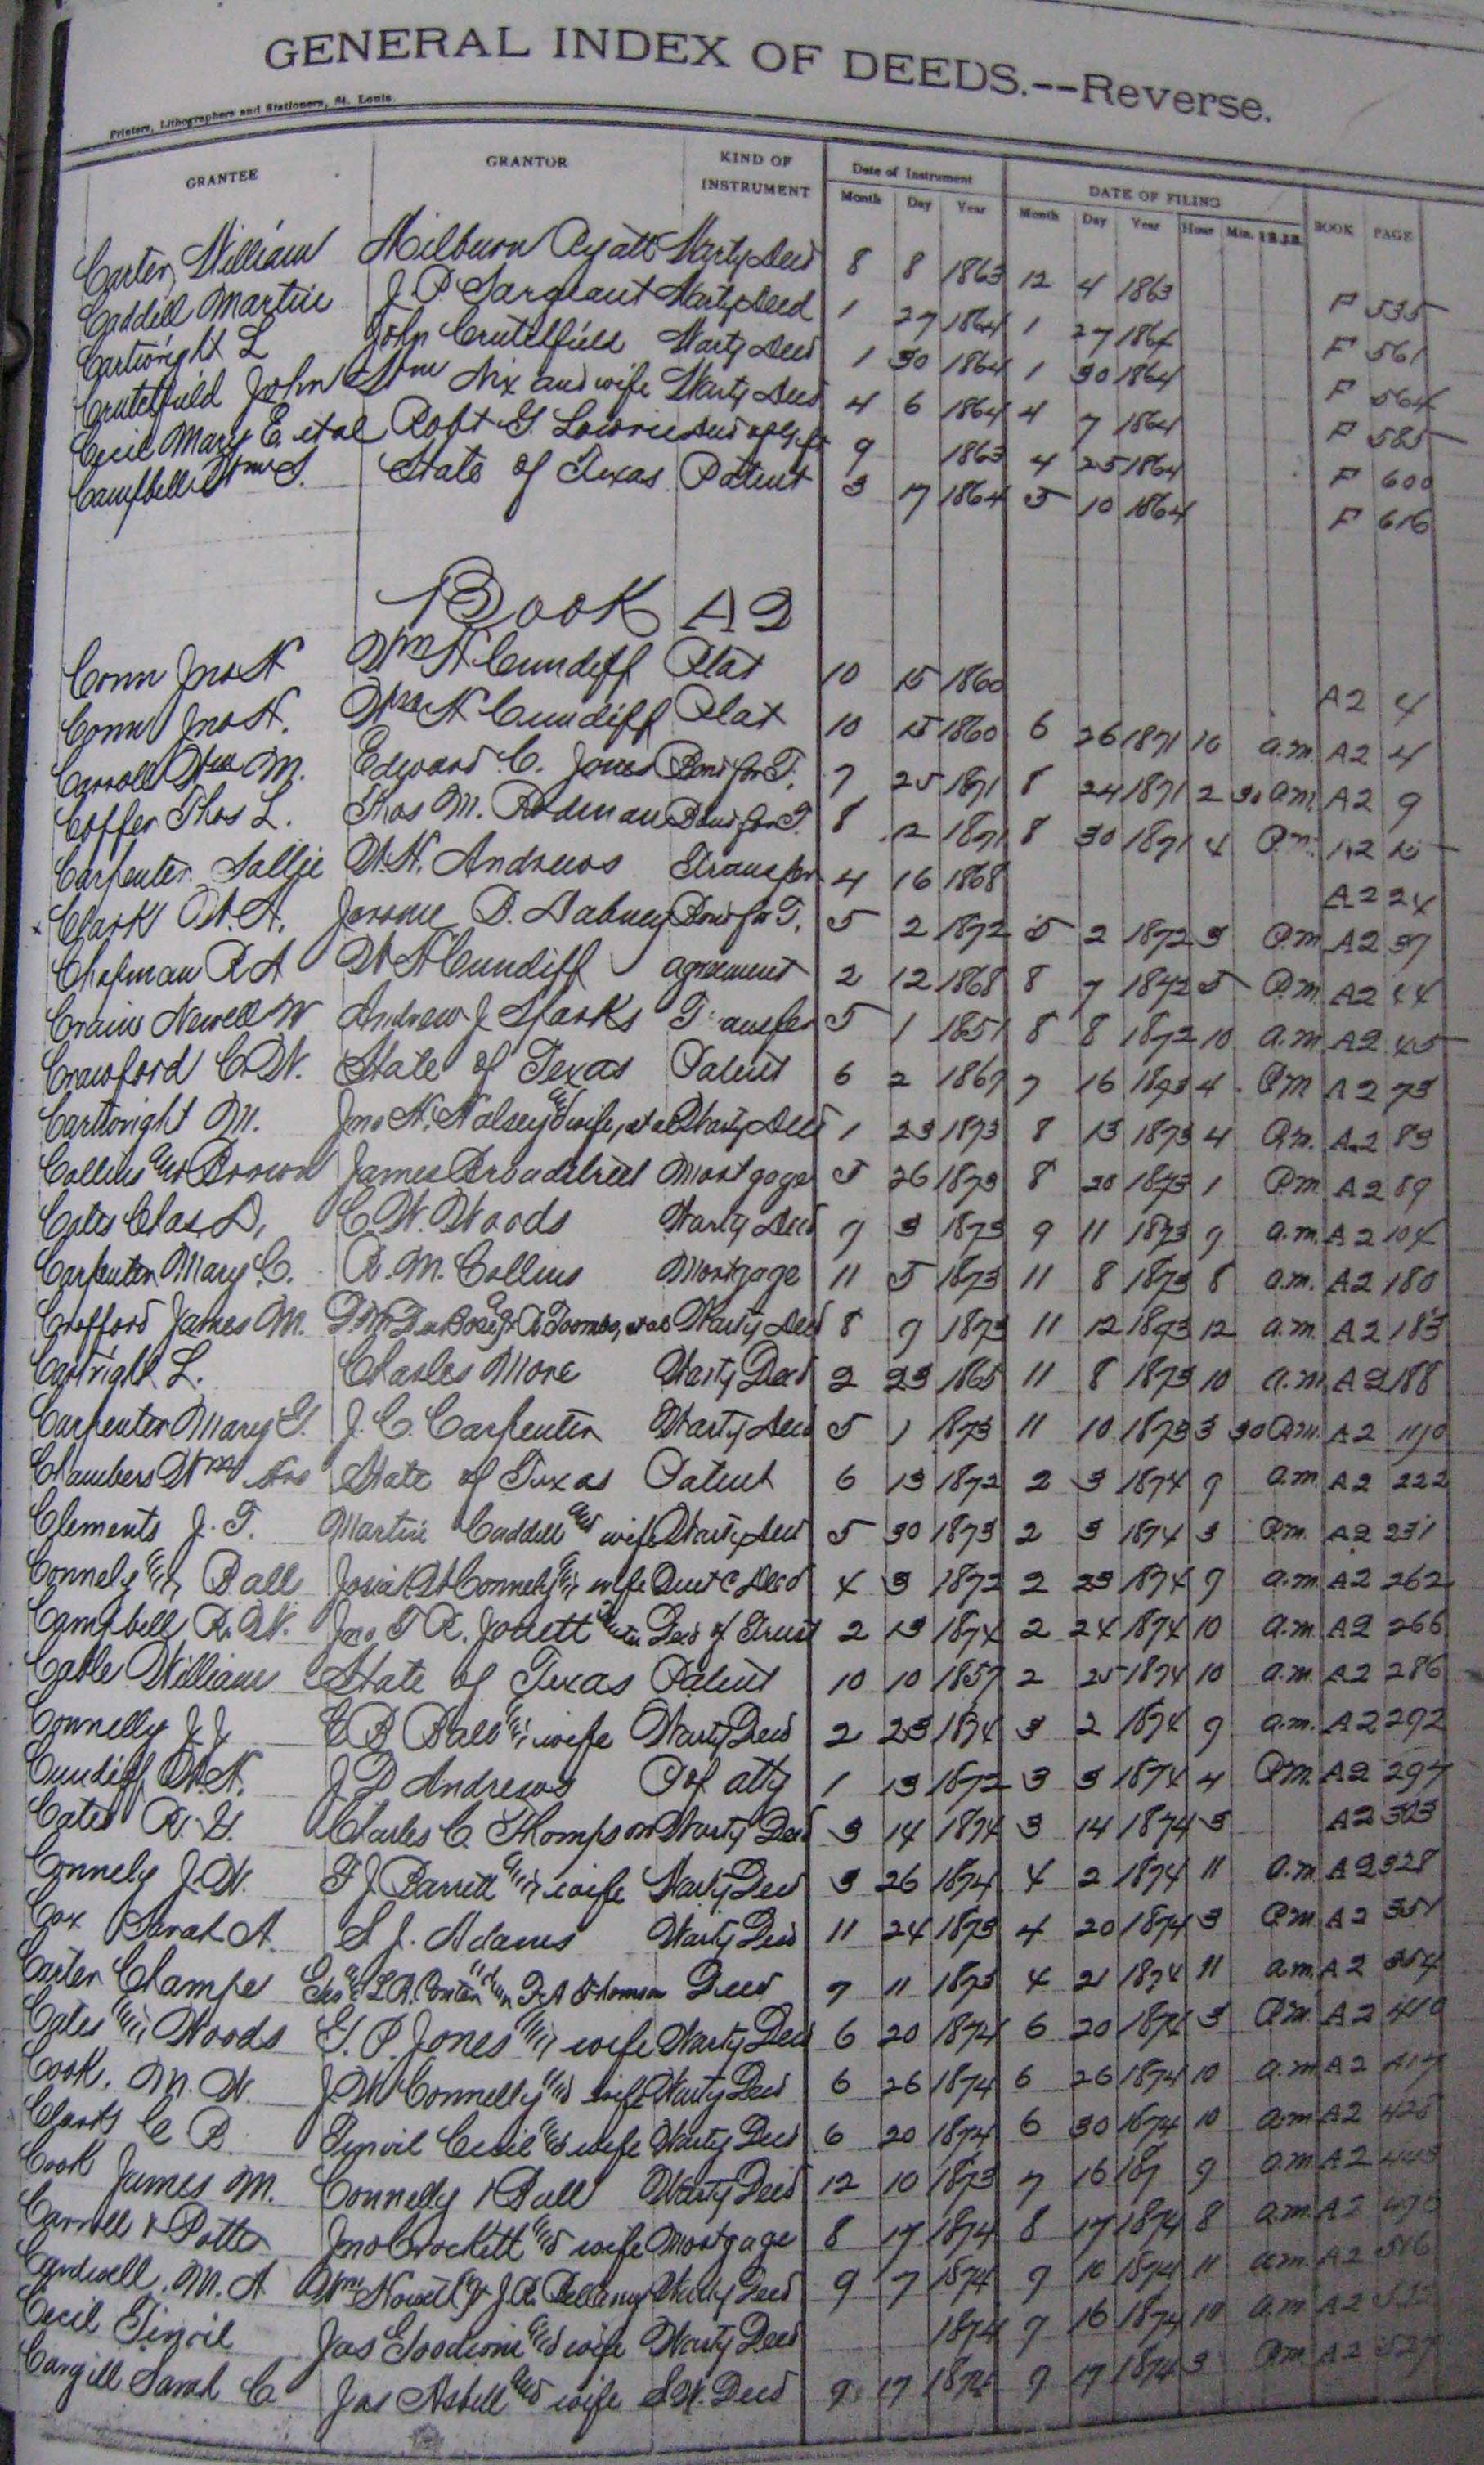 GENERAL INDEX OF DEEDS.--Reverse.
Printers, Lithographers and Stationers, St. Louis.
GRANTEE GRANTOR KIND OF INSTRUMENT Date of Instrument DATE OF FILING BOOK PAGE
Month Day Year Month Day Year Hour Min.
Carter, William Milburn Pyatt Warty Deed 8 8 1863 12 4 1863 F 535
Caddell Martin J. P. Sargeant Warty Deed 1 27 1864 1 27 1864 F 561
Cartwright L John Crutchfield Warty Deed 1 30 1864 1 30 1864 F 564
Crutchfield John Wm Nix and wife Warty Deed 4 6 1864 4 7 1864 F 585
Cecil Mary E. et al Robt G. Lowrie Deed of Gift 9 1863 4 25 1864 F 600
Campbell Wm S. State of Texas Patent 3 17 1864 5 10 1864 F 616
Book A2
Conn Jno H Wm H Cundiff Plat 10 15 1860 A2 4
Conn Jno H. Wm H Cundiff Plat 10 15 1860 6 26 1871 10 a.m. A2 4
Carroll Wm M. Edward C. Jones Bond for T. 7 25 1871 8 24 1871 2 30 a.m. A2 9
Coffer Thos L. Thos M. Rodman Bond for T. 8 12 1871 8 30 1871 4 P.m. A2
Carpenter Sallie W. H. Andrews Transfer 4 16 1868 A2 24
Clark W. A. Jerome B. Dabney Bond for T. 5 2 1872 5 2 1872 3 P.m. A2 37
Chapman R A W H Cundiff agreement 2 12 1868 8 7 1872 5 P.m. A2 44
Crain Newell W Andrew J Sparks Transfer 5 1 1851 8 8 1872 10 a.m. A2 45
Crawford C. W. State of Texas Patent 6 2 1867 7 16 1873 4 P.M A2 73
Cartwright M. Jno H. Halsey & wife, et al Warty Deed 1 23 1873 8 13 1873 4 P.m. A2 83
Collins and Brown James Broadstreet Mortgage 5 26 1873 8 28 1873 1 P.m. A2 89
Cates Chas. D. C. W. Woods Warty Deed 9 3 1873 9 11 1873 9 a.m. A2 104
Carpenter Mary C. R. M. Collins Mortgage 11 5 1873 11 8 1873 8 a.m. A2 180
Crofford James M. Toombs, et al Warty Deed 8 9 1873 11 12 1873 12 a.m. A2 183
Cartright L. Charles More Warty Deed 2 23 1865 11 8 1873 10 a.m. A2 188
Carpenter Mary E. J. C. Carpenter Warty Deed 5 1 1873 11 10 1873 3 30 P.m. A2
Chambers Wm State of Texas Patent 6 13 1872 2 3 1874 9 a.m. A2 222
Clements J. T. Martin Caddell and wife Warty Deed 5 30 1873 2 3 1874 3 P.m. A2 231
Connely and Ball Josiah W Connely and wife Quit C Deed 4 3 1872 2 23 1874 9 a.m. A2 262
Campbell R. W. Jno T R. Jouett Deed of Trust 2 13 1874 2 24 1874 10 a.m. A2 266
Cable William State of Texas Patent 10 10 1857 2 25 1874 10 a.m. A2 286
Connelly J. J. C B Ball and wife Warty Deed 2 23 1874 3 2 1874 9 a.m. A2 292
Cundiff W. H. J D Andrews P of atty 1 13 1872 3 3 1874 4 P.M. A2 297
Cates R. G. Charles C. Thompson Warty Deed 3 14 1874 3 14 1874 3 A2 303
Connely J. W. F J Barrett and wife Warty Deed 3 26 1874 4 2 1874 11 a.m A2 328
Cox Sarah A. S. J. Adams Warty Deed 11 24 1873 4 20 1874 3 P.m. A2 351
Carter Champe Deed 7 11 1873 4 21 1874 11 a.m. A2 354
Cates and Woods G. P. Jones and wife Warty Deed 6 20 1874 6 20 1874 3 P.m. A2 410
Cook, M. W. J. W Connelly and wife Warty Deed 6 26 1874 6 26 1874 10 a.m A2 417
Clark C B. Finvil Cecil and wife Warty Deed 6 20 1874 6 30 1874 10 a.m A2
Cook James M. Connelly & Ball Warty Deed 12 10 1873 7 16 187 9 a.m A2
Carroll & Potter Jno Crockett and wife Mortgage 8 17 1874 8 17 1874 8 a.m. A2
Cardwell, M. A Wm Howell J. R. Bellamy Warty Deed 9 7 1874 9 1874 11 a.m. A2 516
Cecil Finvil Jas Goodwin and wife Warty Deed 1874 9 16 1874 10 a.m A2
Cargill Sarah C Jas Asbell and wife S.W. Deed 9 17 1874 9 17 1874 3 P.m. A2 527